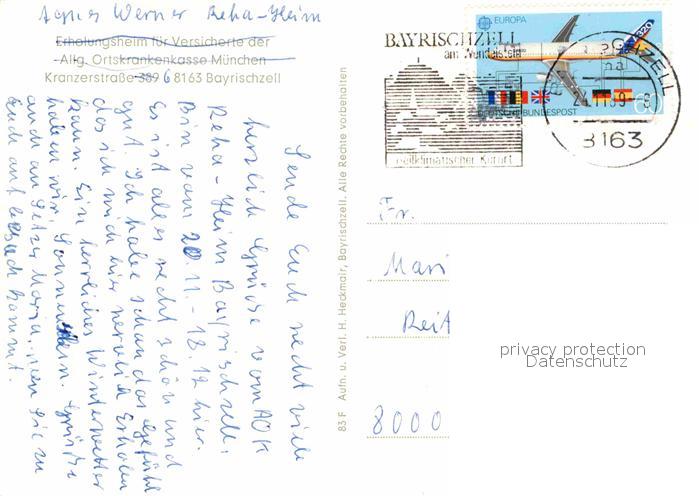 Agnes Werner Reha-Heim
Erholungsheim für Versicherte der
Allg. Ortskrankenkasse München
Kranzerstraße 389 6 8163 Bayrischzell
EUROPA
A320
60
DEUTSCHE BUNDESPOST
BAYRISCHZELL
am Wendelstein
heilklimatischer Kurort
8163
Sende Euch recht viele
herzlich Grüße vom AOK
Reha-Heim Bayrischzell.
Bin vom 20.11.-18.12 hier.
Es ist alles recht schön und
gut. Ich habe schon das Gefühl
das ich mich hier herrlich Erholen
kann. Ein herrliches Winterwetter
haben wir, Sonnenschein. Grüße
auch an
Euch auf besuch kommt.
83 F Aufn. u. Verl. H. Heckmair, Bayrischzell. Alle Rechte vorbehalten
Fr.
Mari
Reit
8000
privacy protection
Datenschutz